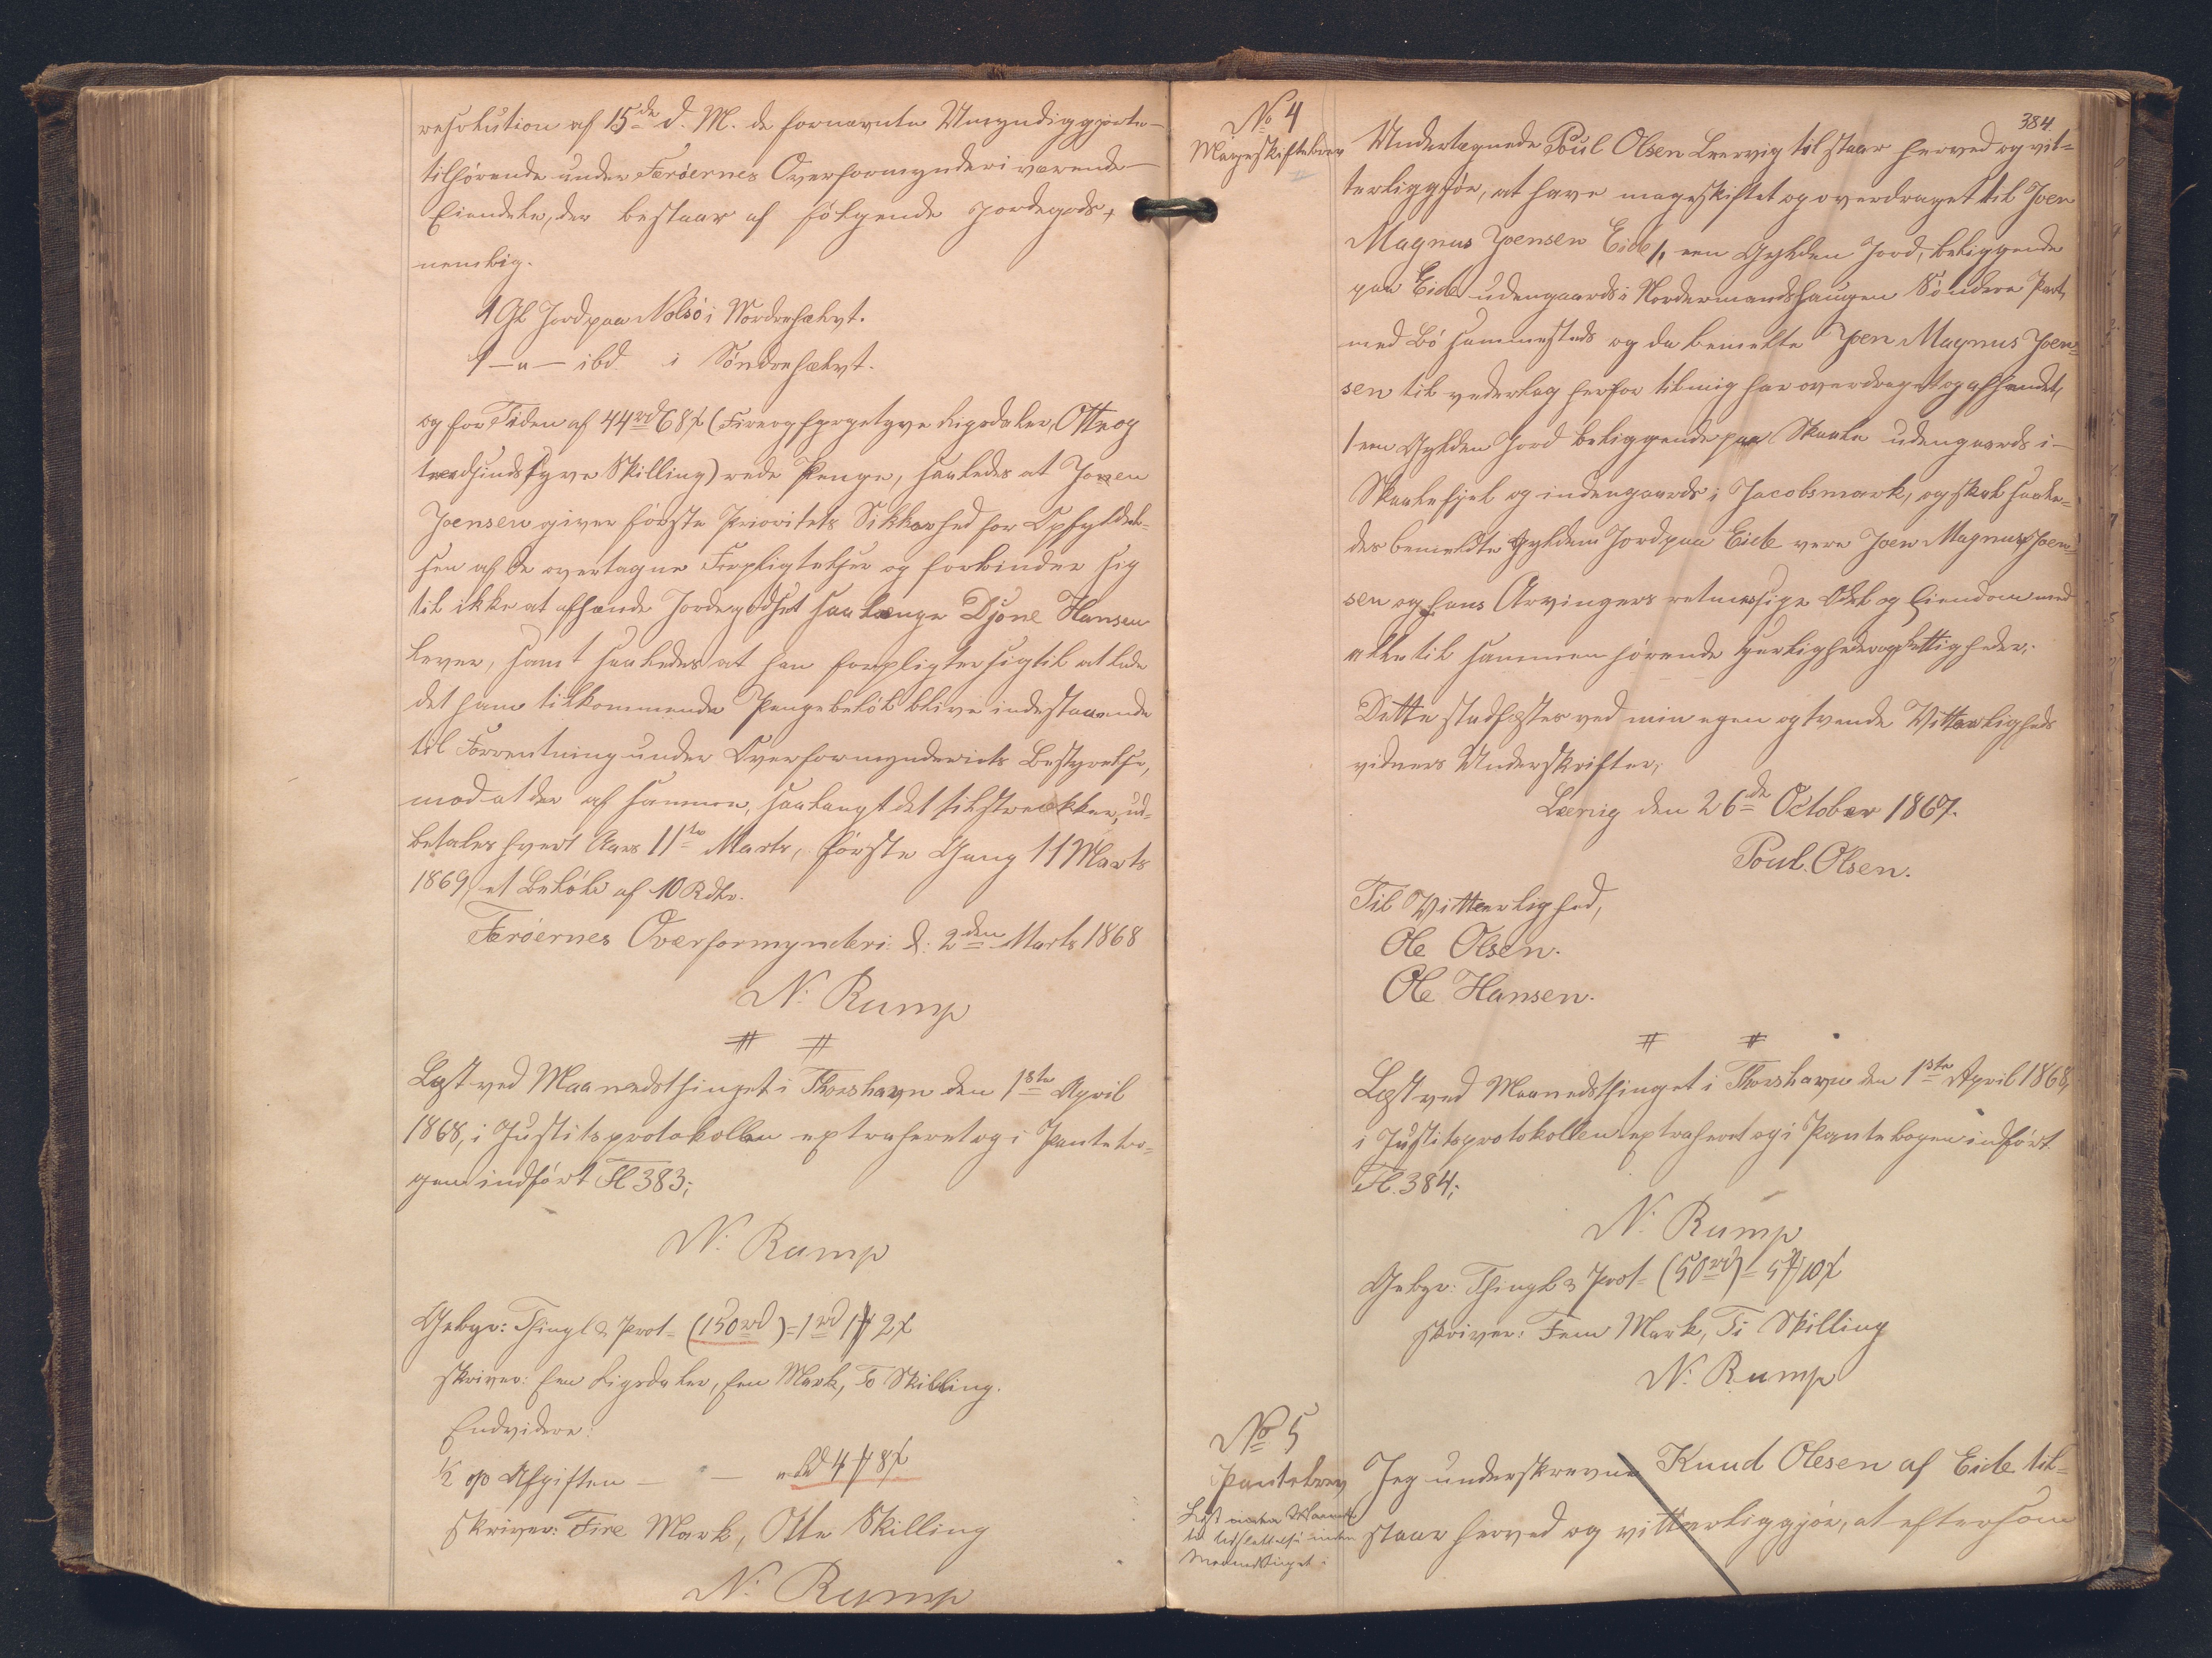 resolution af 15de d. M. de fornævnte Umyndiggjorte
tilhørende under Færøernes Overformynderi værende
Eiendele, der bestaar af følgende Jordegods,
nemlig.
1 Gl Jord paa Nolsø i Nordrehælvt.
1 —"— ibd. i Søndrehælvt.
og for Tiden af 44rd 68ß (Fireogfyrgetyve Rigsdaler, Otte og
tredsindstyve Skilling) rede Penge, saaledes at Joen
Joensen giver første Prioritets Sikkerhed for Opfyldel=
sen af de overtagne Forpligtelser og forbinder sig
til ikke at afhænde Jordegodset saa længe Djone Hansen
lever, samt saaledes at han forpligter sig til at lade
det ham tilkommende Pengebeløb blive indestaaende
til Forrentning under Overformynderiets Bestyrelse,
mod at der af sammen, saalangt det tilstrækker, ud=
betales hvert Aars 11te Marts, første Gang 11 Marts
1869, et Beløb af 10 Rdlr.
Færøernes Overformynderi d: 2den Marts 1868
N. Rump
# #
Læst ved Maanedsthinget i Thorshavn den 1ste April
1868, i Justitsprotokollen extraheret og i Pantebo=
gen indført Fl 383;
N. Rump
Gebyr: Thingl & Prot= (150rd) = 1rd 1ꝳ 2ß
skriver: Een Rigsdaler, Een Mark, To Skilling.
Endvidere:
½ op Afgiften — — " rd 4ꝳ 8ß
skriver: Fire Mark, Otte Skilling
N. Rump
384.
No 4
Mageskiftebrev
Undertegnede Poul Olsen Leervig tilstaar herved og vit=
terliggjør, at have mageskiftet og overdraget til Joen
Magnus Joensen Eide 1, een Gylden Jord, beliggende
paa Eide udengaards i Nordermandshaugen Søndere Part,
med Bø sammesteds og da bemeldte Joen Magnus Joen=
sen til vederlag herfor til mig har overdraget og afhændet,
1 een Gylden Jord beliggende paa Skaale udengaards i
Skaalefjel og indengaards i Jacobsmark, og skal saale=
des bemeldte Gylden Jord paa Eide være Joen Magnus Joen=
sen og hans Arvingers retmæssige Odel og Eiendom med
alle til sammen hørende Herligheder og Rettigheder.
Dette stadfæstes ved min egen og tvende Vitterligheds
vidners Underskrifter,
Lervig den 26de October 1867.
Poul Olsen.
Til Vitterlighed,
Ole Olsen.
Ole Hansen.
# #
Læst ved Maanedsthinget i Thorshavn den 1ste April 1868,
i Justitsprotokollen extraheret og i Pantebogen indført
Fl. 384;
N. Rump
Gebyr: Thingl & Prot= (50rd) = 5ꝳ 10ß
skriver: Fem Mark, Ti Skilling
N. Rump
No 5
Pantebrev
Jeg underskrevne Knud Olesen af Eide til=
staar herved og vitterliggjør, at eftersom